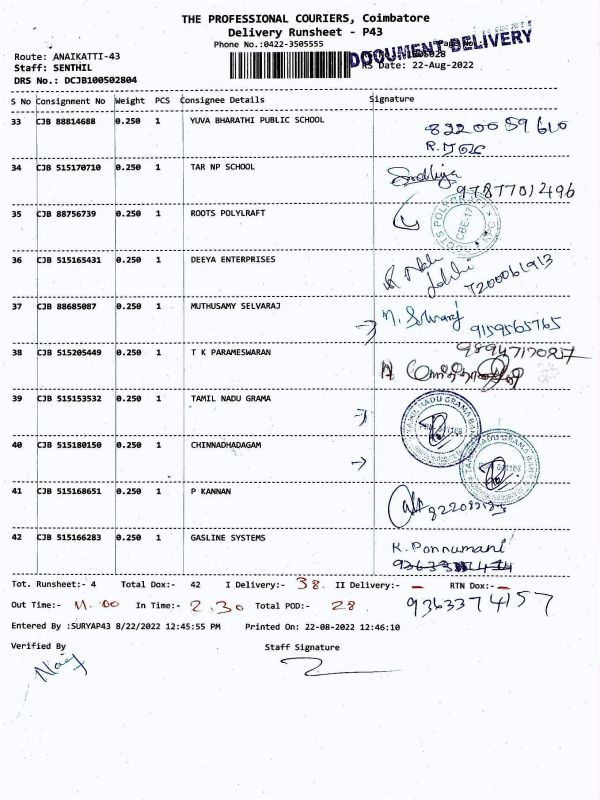 THE PROFESSIONAL COURIERS, Coimbatore
Delivery Runsheet - P43
Phone No.:0422-3505555
DOCUMENT DELIVERY
Route: ANAIKATTI-43
Staff: SENTHIL
RS Date: 22-Aug-2022
DRS No.: DCJB100502804
S No Consignment No Weight PCS Consignee Details Signature
33 CJB 88814688 0.250 1 YUVA BHARATHI PUBLIC SCHOOL 8220059610
34 CJB 515170710 0.250 1 TAR NP SCHOOL 97877012496
35 CJB 88756739 0.250 1 ROOTS POLYLRAFT CBE-17
36 CJB 515165431 0.250 1 DEEYA ENTERPRISES 7200061913
37 CJB 88685087 0.250 1 MUTHUSAMY SELVARAJ M. Selvaraj 9159565765
38 CJB 515205449 0.250 1 T K PARAMESWARAN
39 CJB 515153532 0.250 1 TAMIL NADU GRAMA
40 CJB 515180150 0.250 1 CHINNADHADAGAM
41 CJB 515168651 0.250 1 P KANNAN
42 CJB 515166283 0.250 1 GASLINE SYSTEMS K. Ponnumani
Tot. Runsheet:- 4 Total Dox:- 42 I Delivery:- 38. II Delivery:- - RTN Dox:- -
Out Time:- 11.00 In Time:- 2.30 Total POD:- 28. 9363374157
Entered By :SURYAP43 8/22/2022 12:45:55 PM Printed On: 22-08-2022 12:46:10
Verified By Staff Signature